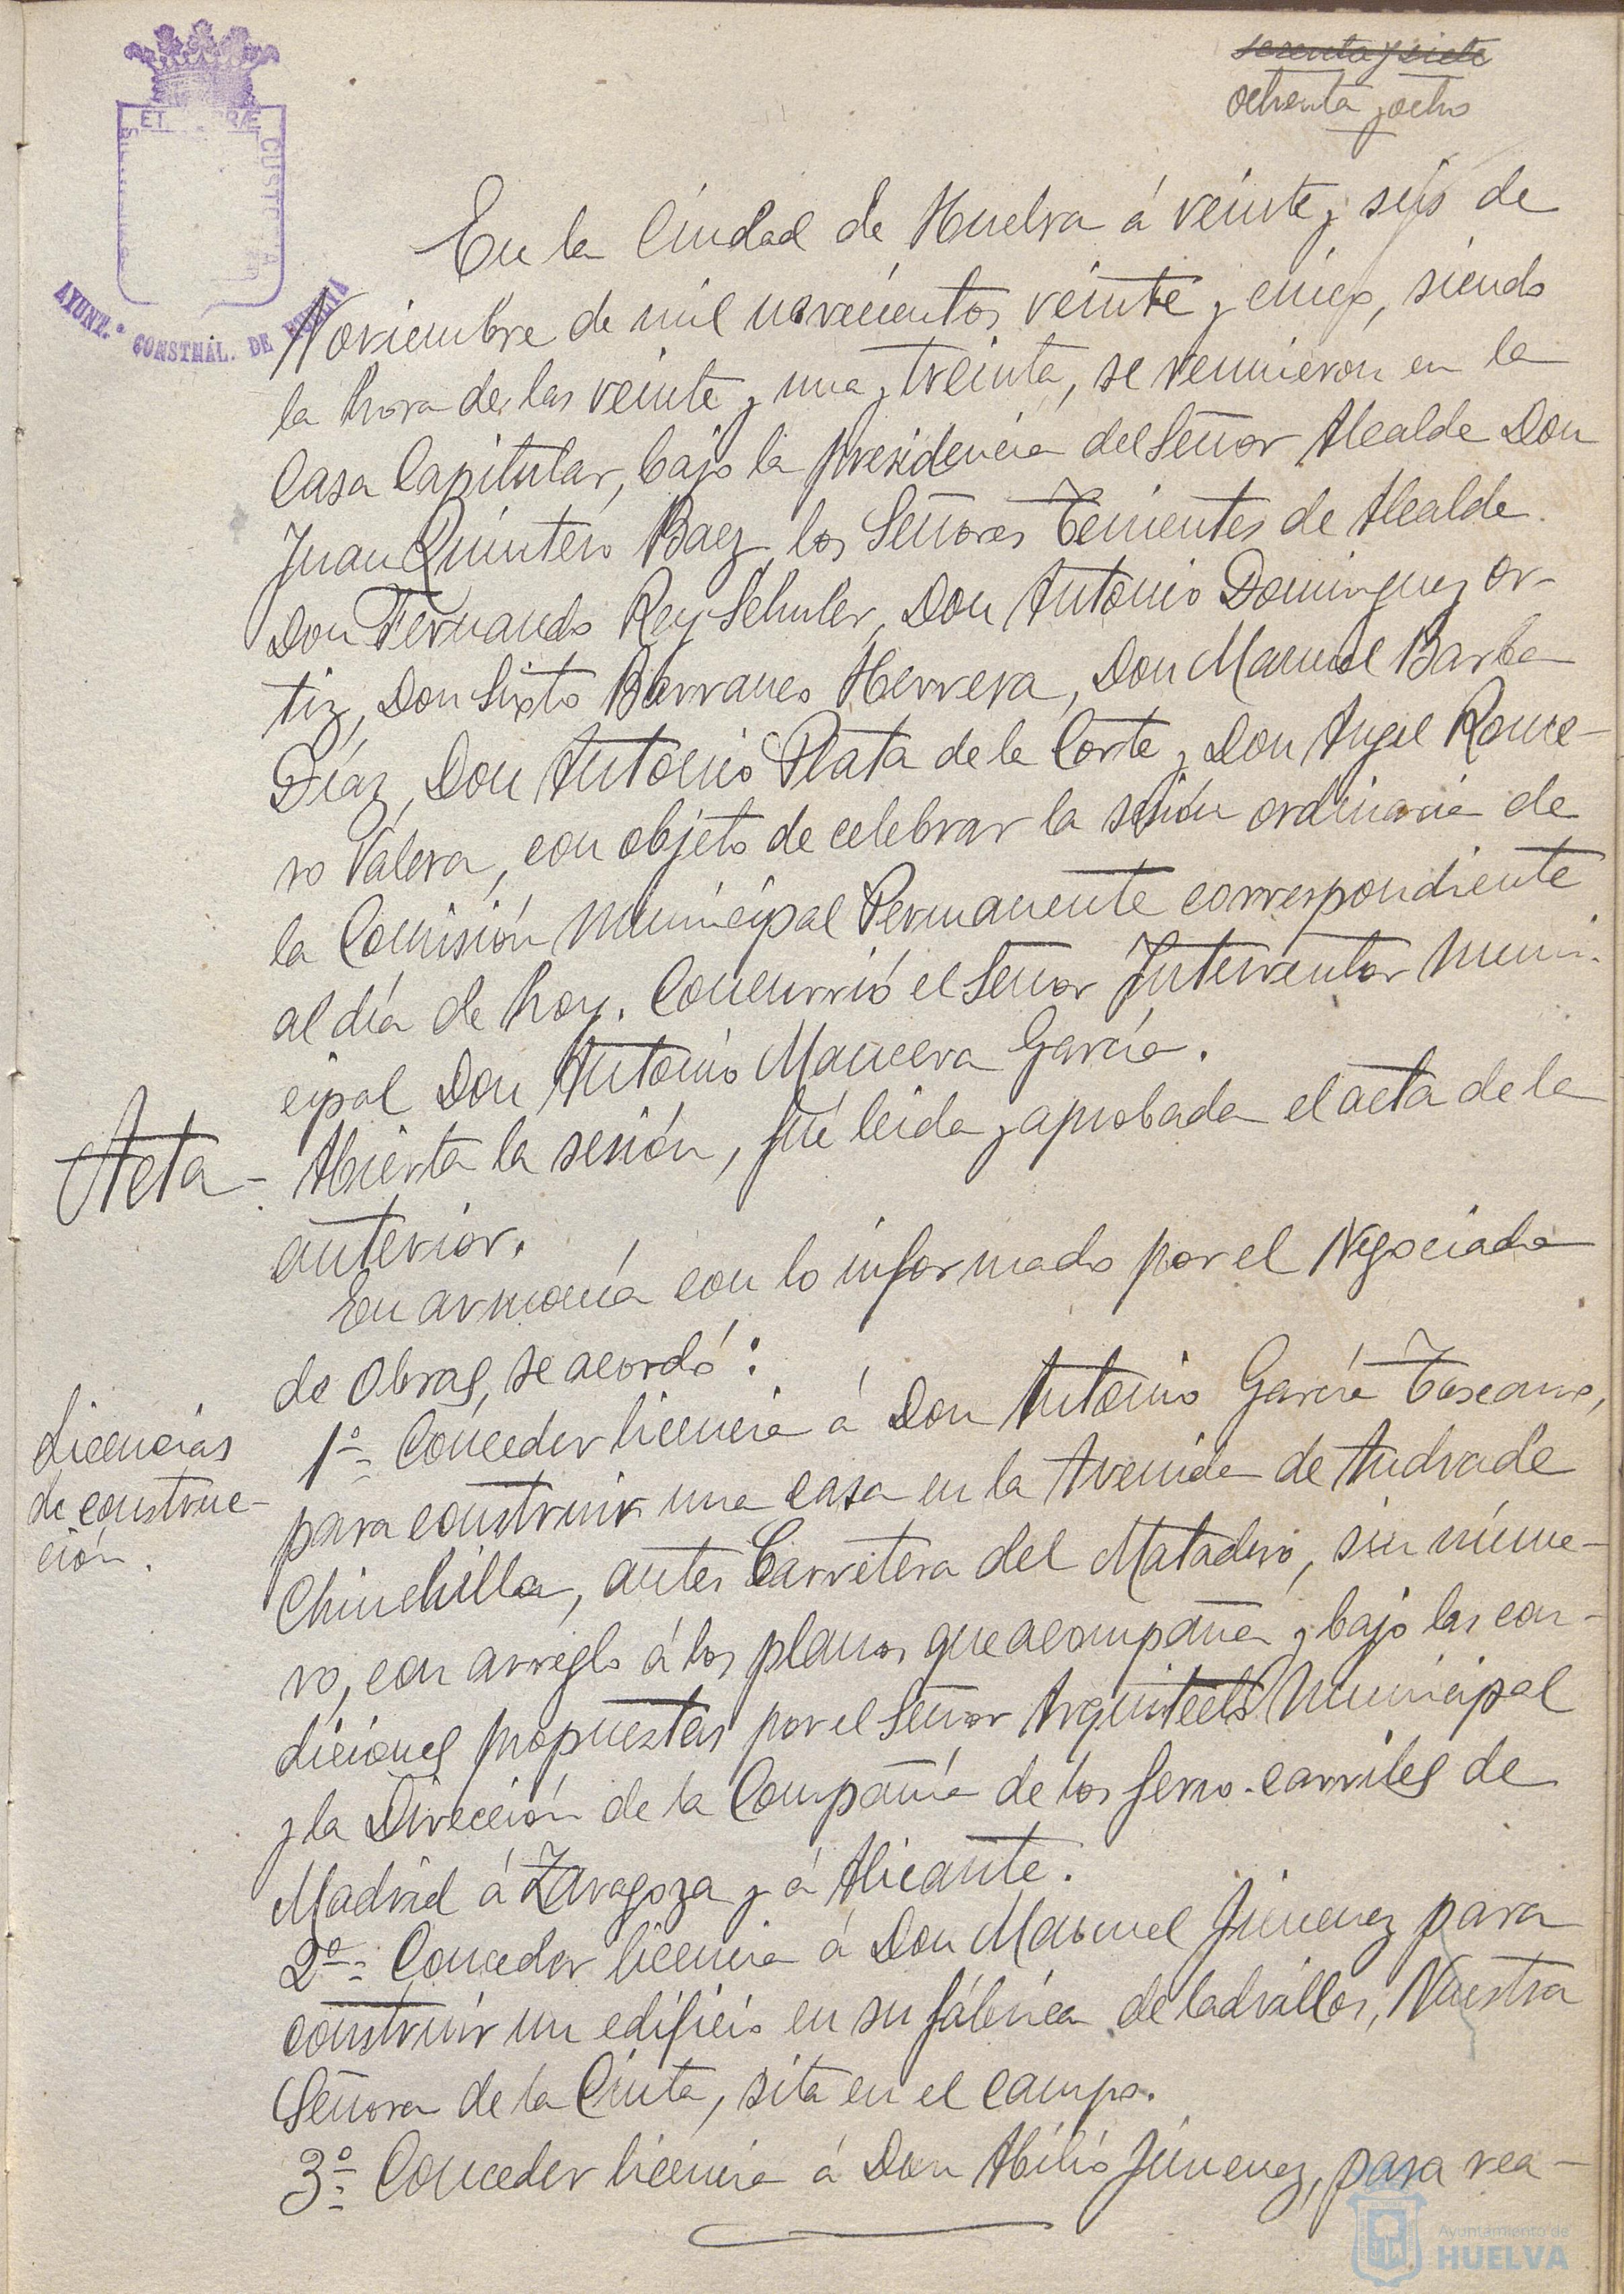 sesenta y siete
ochenta y ocho
ET TERRÆ
CUSTO
AYUNT.º CONSTNAL. DE HUELVA
En la Ciudad de Huelva á veinte y seis de
Noviembre de mil novecientos veinte y cinco, siendo
la hora de las veinte y una y treinta, se reunieron en la
Casa Capitular, bajo la presidencia del Señor Alcalde Don
Juan Quintero Baez, los Señores Tenientes de Alcalde
Don Fernando Rey Schuler, Don Antonio Dominguez Or-
tiz, Don Sixto Barranco Herrera, Don Manuel Barba
Díaz, Don Antonio Plata de la Corte y Don Angel Rome-
ro Valera, con objeto de celebrar la sesión ordinaria de
la Comisión Municipal Permanente correspondiente
al día de hoy. Concurrió el Señor Interventor Muni-
cipal Don Antonio Mancera García.
Acta- Abierta la sesión, fué leida y aprobada el acta de la
anterior.
En armonía con lo informado por el Negociado
de Obras, se acordó:
Licencias
de construc-
ción.
1º- Conceder licencia á Don Antonio García Toscano,
para construir una casa en la Avenida de Andrade
Chinchilla, antes Carretera del Matadero, sin núme-
ro, con arreglo á los planos que acompaña y bajo las con-
diciones propuestas por el Señor Arquitecto Municipal
y la Dirección de la Compañía de los ferro-carriles de
Madrid á Zaragoza y á Alicante.
2º- Conceder licencia á Don Manuel Jimenez para
construir un edificio en su fábrica de ladrillos, Nuestra
Señora de la Cinta, sita en el campo.
3º- Conceder licencia á Don Abilio Jimenez, para rea-
Ayuntamiento de
HUELVA